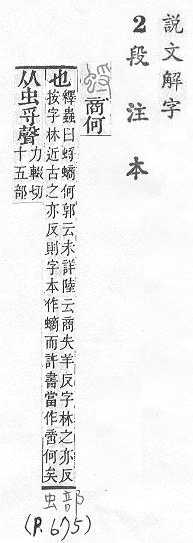 説文解字
2段注本
商何
也
釋蟲曰蛶螪何郭云未詳陸云商失羊反字林之亦反
按字林近古之亦反則字本作螪而許書當作啻何矣
从虫寽聲
力輟切
十五部
虫部
(P.675)